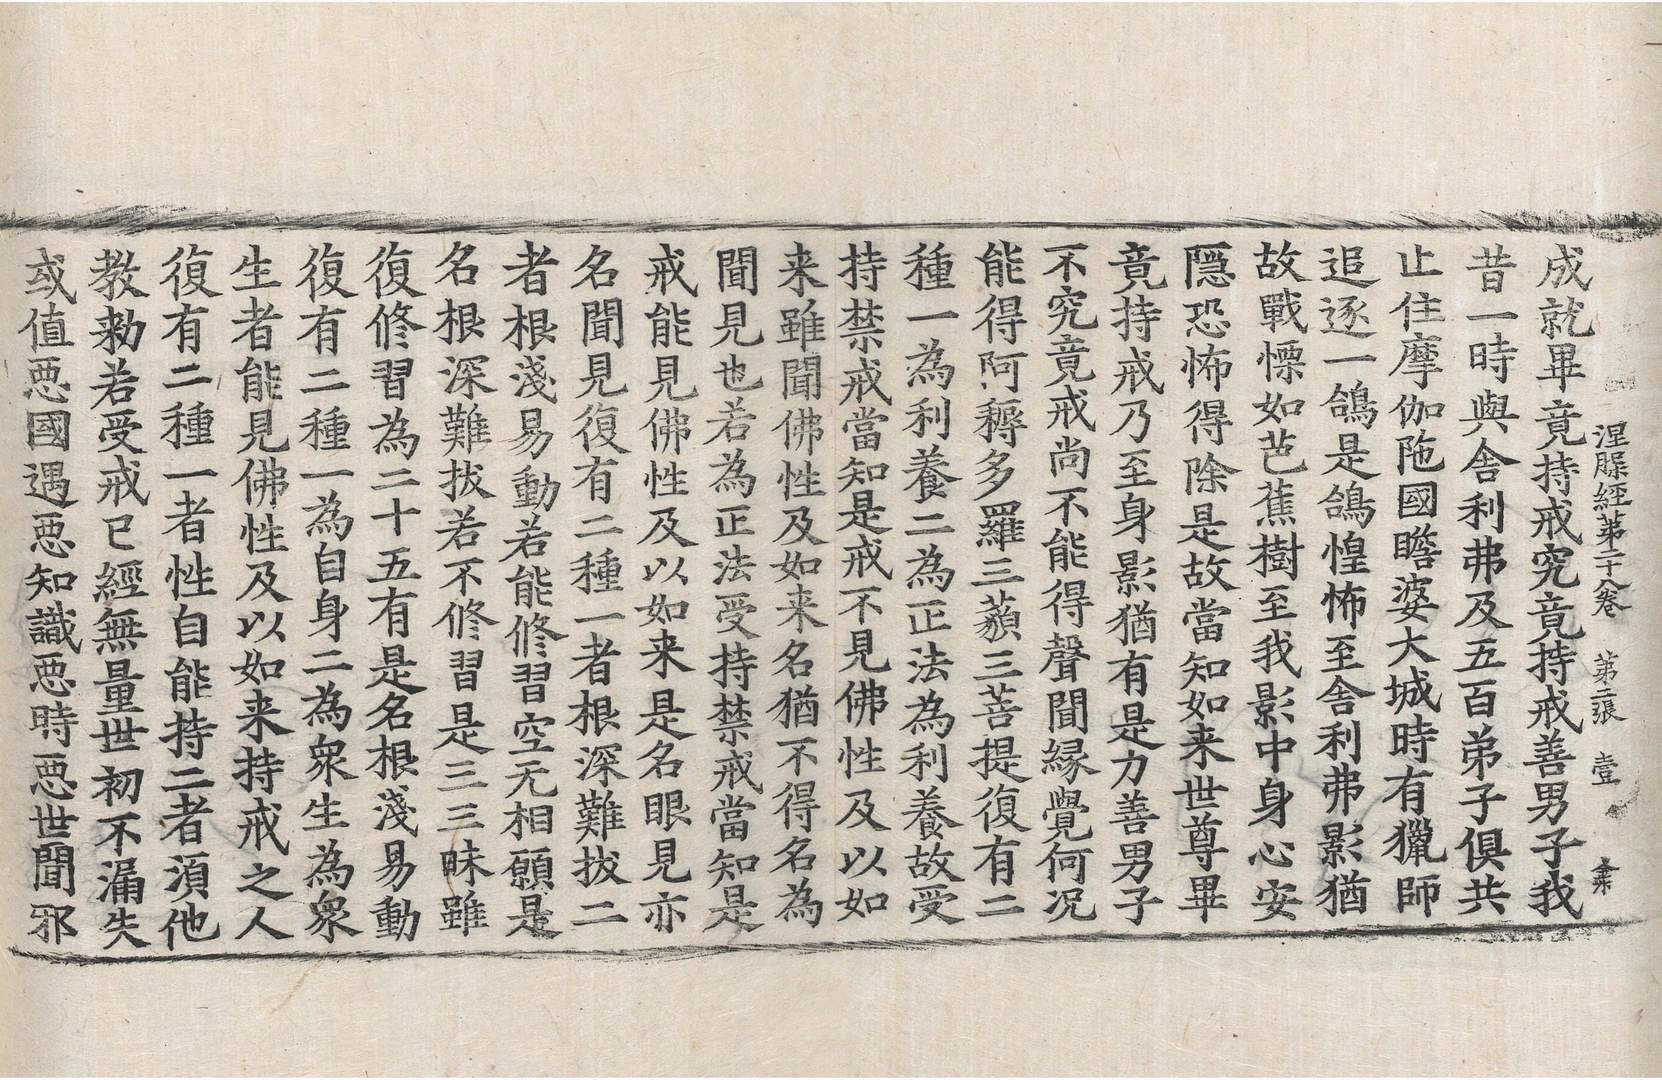 涅槃經第二十八卷 第二張 壹
成就畢竟持戒究竟持戒善男子我
昔一時與舍利弗及五百弟子俱共
止住摩伽陁國瞻婆大城時有獵師
追逐一鴿是鴿惶怖至舍利弗影猶
故戰慄如芭蕉樹至我影中身心安
隱恐怖得除是故當知如来世尊畢
竟持戒乃至身影猶有是力善男子
不究竟戒尚不能得聲聞緣覺何况
能得阿耨多羅三藐三菩提復有二
種一為利養二為正法為利養故受
持禁戒當知是戒不見佛性及以如
来雖聞佛性及如来名猶不得名為
聞見也若為正法受持禁戒當知是
戒能見佛性及以如来是名眼見亦
名聞見復有二種一者根深難拔二
者根淺易動若能修習空无相願是
名根深難拔若不修習是三三昧雖
復修習為二十五有是名根淺易動
復有二種一為自身二為衆生為衆
生者能見佛性及以如来持戒之人
復有二種一者性自能持二者湏他
教勑若受戒已經無量世初不漏失
或值惡國遇惡知識惡時惡世聞邪